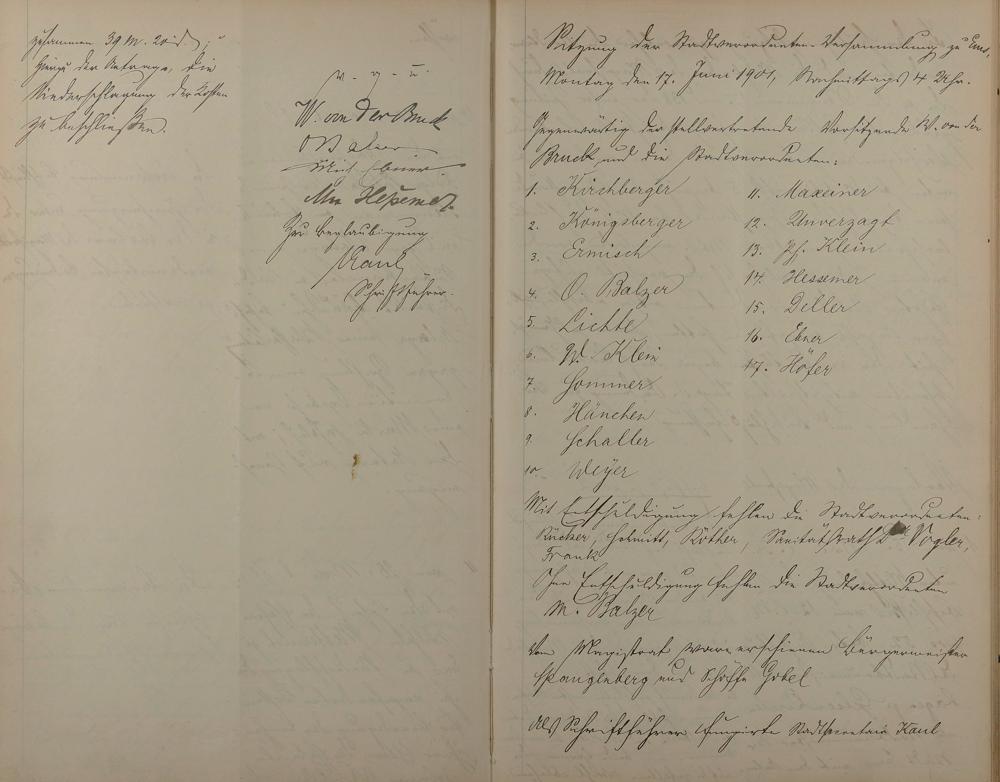 zusammen 39 M. 20 d,
der Anfrage, die
Niederschlagung der Kosten
zu beschließen.
v. g. u.
W. von der Bruck
O Balzer
Zur Beglaubigung
Kaul
Schriftführer.
Sitzung der Stadtverordneten-Versammlung zu Ems,
Montag den 17. Juni 1901, Nachmittags 4 Uhr.
Gegenwärtig der stellvertretende Vorsitzende W. von der
Bruck und die Stadtverordneten:
1. Kirchberger
2. Königsberger
3. Ermisch
4. O. Balzer
5. Lichte
6. W. Klein
7. Sommer
8. Hünchen
9. Schaller
10. Weyer
11. Maxeiner
12. Unverzagt
13. Ph. Klein
14. Hessemer
15. Deller
16. Ebner
17. Höfer
Mit Entschuldigung fehlen die Stadtverordneten:
Rücker, Schmitt, Köther, Sanitätsrath Dr Vogler,
Frank
Ohne Entschuldigung fehlen die Stadtverordneten
M. Balzer
Vom Magistrat waren erschienen Bürgermeister
Spangenberg und Schöffe Gobel
Als Schriftführer fungirte Stadtsecretair Kaul